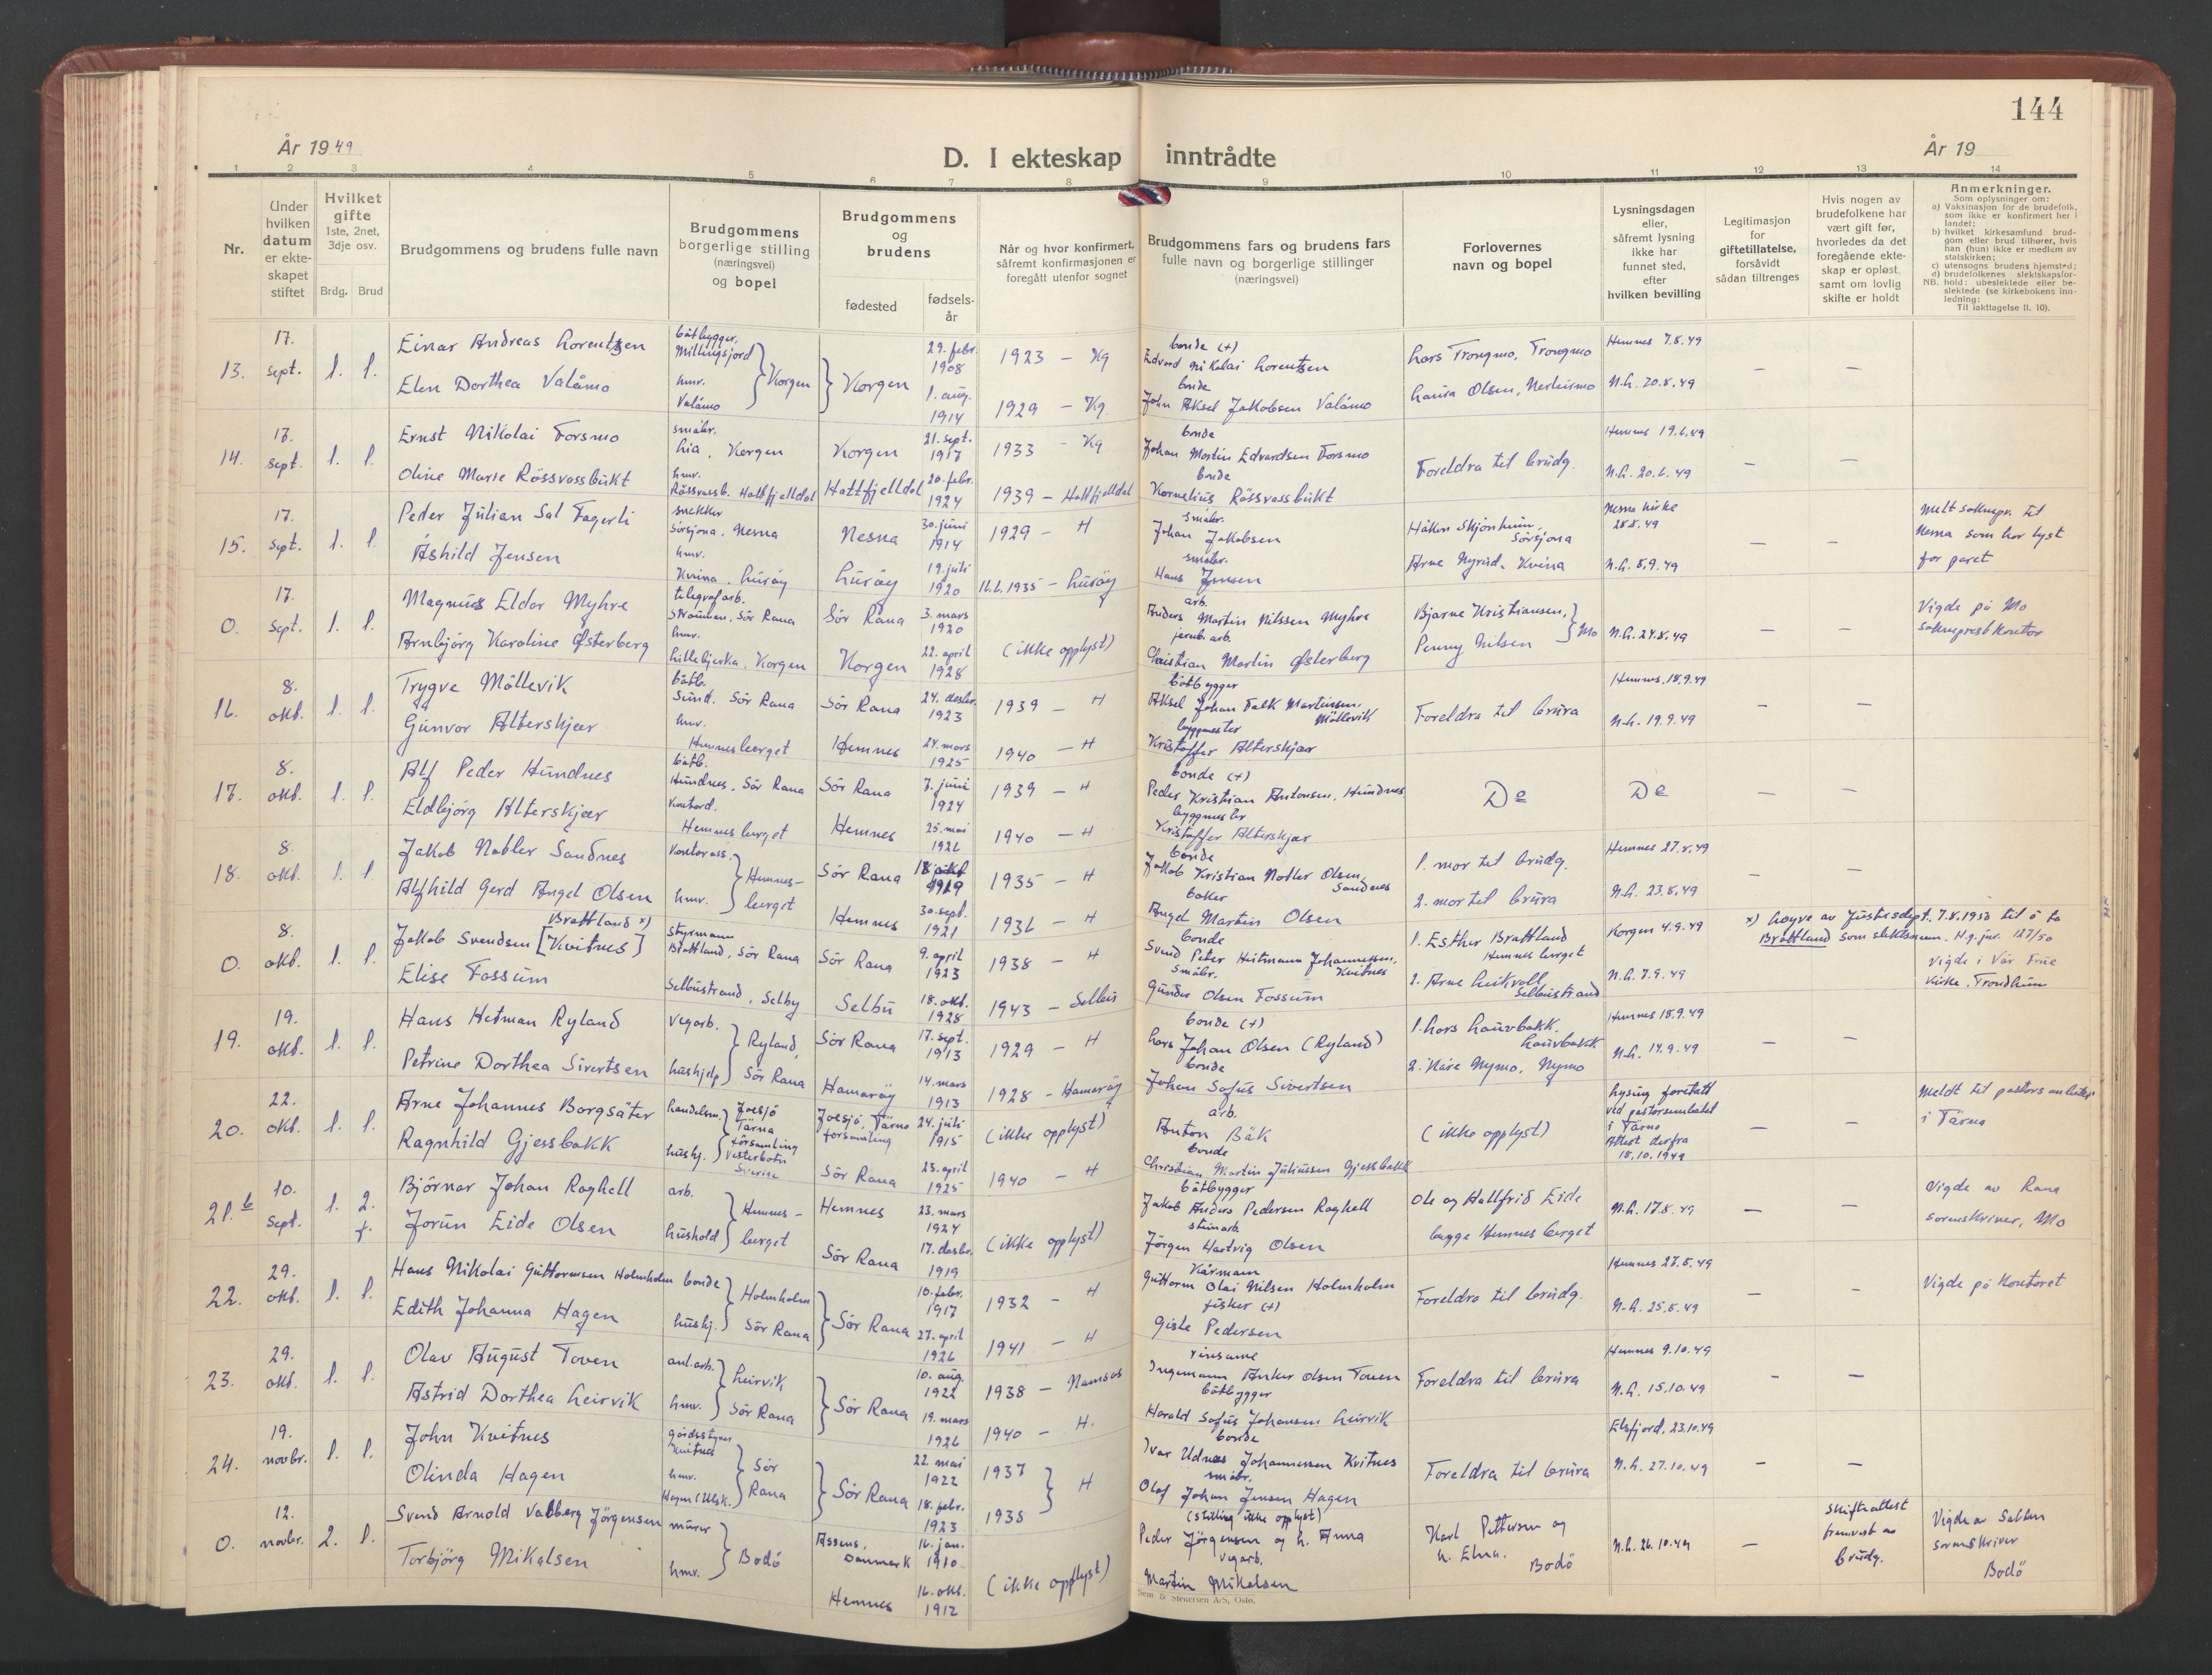 144
År 1949
D. I ekteskap inntrådte
År 19
1 2 3 4 5 6 7 8 9 10 11 12 13 14
Nr.
Under hvilken datum er ekteskapet stiftet
Hvilket gifte 1ste, 2net, 3dje osv.
Brdg. Brud
Brudgommens og brudens fulle navn
Brudgommens borgerlige stilling (næringsvei) og bopel
Brudgommens og brudens
fødested
fødselsår
Når og hvor konfirmert, såfremt konfirmasjonen er foregått utenfor sognet
Brudgommens fars og brudens fars fulle navn og borgerlige stillinger (næringsvei)
Forlovernes navn og bopel
Lysningsdagen eller, såfremt lysning ikke har funnet sted, efter hvilken bevilling
Legitimasjon for giftetillatelse, forsåvidt sådan tiltrenges
Hvis nogen av brudefolkene har vært gift før, hvorledes da det foregående ekteskap er opløst, samt om lovlig skifte er holdt
Anmerkninger.
Som oplysninger om:
a) Vaksinasjon for de brudefolk, som ikke er konfirmert her i landet;
b) hvilket kirkesamfund brudgom eller brud tilhører, hvis han (hun) ikke er medlem av statskirken;
c) utensogns brudens hjemsted;
d) brudefolkenes slektskapsforhold: ubeslektede eller beslektede (se kirkebokens innledning:
NB. Til iakttagelse II. 10).
13. 17. sept. 1. 1.
Einar Andreas Lorentzen
båtbygger, Millingsjord
Elen Dorthea Valåmo
hmv. Valåmo
Korgen
Korgen
29. febr. 1908
1. aug. 1914
1923 – Kg
1929 – Kg.
bonde (+)
Edvard Nikolai Lorentzen
bonde
John Aksel Jakobsen Valåmo
Lars Trongmo, Trongmo
Laura Olsen, Nerleirmo
Hemnes 7.8.49
N.L. 20.8.49
– –
14. 17. sept. 1. 1.
Ernst Nikolai Forsmo
småbr. Lia, Korgen
Oline Marie Rössvassbukt
hmv. Rössvassb. Hattfjelldal
Korgen
Hattfjelldal
21. sept. 1917
20. febr. 1924
1933 – Kg
1939 – Hattfjelldal
bonde
Johan Martin Edvardsen Forsmo
bonde
Kornelius Rössvassbukt
Foreldra til brudg.
Hemnes 19.6.49
N.L. 20.6.49
– –
15. 17. sept. 1. 1.
Peder Julian Sal Fagerli
snekker Sörsjona, Nesna
Åshild Jensen
hmv. Kvina, Luröy
Nesna
Luröy
30. juni 1914
19. juli 1920
1929 – H
16.6.1935 – Luröy
småbr.
Johan Jakobsen
småbr.
Hans Jensen
Håkon Skjönheim, Sörsjona
Arne Nyrud, Kvina
Nesna kirke 28.8.49
N.L. 8.9.49
– –
Melt soknepr. til Nesna som har lyst for paret
0. 17. sept. 1. 1.
Magnus Eldor Myhre
telegrafarb. Straumen, Sör Rana
Arnbjörg Karoline Østerberg
hmv. Lillebjerka, Korgen
Sör Rana
Korgen
3. mars 1920
22. april 1928
(ikke opplyst)
arb.
Anders Martin Nilssen Myhre
jernb.arb.
Christian Martin Østerberg
Bjarne Kristiansen,
Penny Nilsen
Mo
N.L. 24.8.49
– –
Vigde på Mo sokneprestkontor
16. 8. okt. 1. 1.
Trygve Möllevik
båtb. Sund, Sör Rana
Gunvor Alterskjær
hmv. Hemnesberget
Sör Rana
Hemnes
24. desbr. 1923
24. mars 1925
1939 – H
1940 – H
båtbygger
Aksel Johan Falk Martinsen, Möllevik
byggmester
Kristoffer Alterskjær
Foreldra til brura
Hemnes 18.9.49
N.L. 19.9.49
– –
17. 8. okt. 1. 1.
Alf Peder Hundnes
båtb. Hundnes, Sör Rana
Eldbjörg Alterskjær
Kontord. Hemnesberget
Sör Rana
Hemnes
7. juni 1924
25. mai 1926
1939 – H
1940 – H
bonde (+)
Peder Kristian Antonsen, Hundnes
byggmester
Kristoffer Alterskjær
Do
Do
– –
18. 8. okt. 1. 1.
Jakob Nobler Sandnes
Kontorass.
Alfhild Gerd Angel Olsen
hmv.
Hemnesberget
Sör Rana
Hemnes
1919
30. sept. 1921
1935 – H
1936 – H
bonde
Jakob Kristian Notler Olsen, Sandnes
baker
Angel Martin Olsen
1. mor til brudg.
2. mor til brura
Hemnes 27.8.49
N.L. 23.8.49
– –
0. 8. okt. 1. 1.
Brattland x)
Jakob Svendsen [Kvitnes]
styrmann Brattland, Sör Rana
Elise Fossum
Selbustrand, Selby
Sör Rana
Selbu
9. april 1923
18. okt. 1928
1938 – H
1943 – Selbu
bonde
Svend Peter Heitmann Johannessen, Kvitnes
småbr.
Gunder Olsen Fossum
1. Esther Brattland Hemnesberget
2. Arne Leikvoll Selbustrand
Korgen 4.9.49
N.L. 7.9.49
x) Løyve av Justisdept. 7.8.1950 til å ta Brattland som slektsnamn. H.g. jnr. 127/50
Vigde i Vår Frue Kirke, Trondheim
19. 19. okt. 1. 1.
Hans Hetman Ryland
Vegarb.
Petrine Dorthea Sivertsen
hushjelp
Ryland, Sör Rana
Sör Rana
Hamaröy
17. sept. 1913
14. mars 1913
1929 – H
1928 – Hamaröy
bonde (+)
Lars Johan Olsen (Ryland)
bonde
Johan Sofus Sivertsen
1. Lars Laurbakk, Laurbakk
2. Kåre Nymo, Nymo
Hemnes 18.9.49
N.L. 14.9.49
– –
20. 22. okt. 1. 1.
Arne Johannes Borgsäter
handelsm.
Ragnhild Gjessbakk
hushj.
Joesjö Tärna församling Vesterbotn Sverige
Joesjö, Tärna forsamling
Sör Rana
24. juli 1915
23. april 1925
(ikke opplyst)
1940 – H
arb.
Anton Bäk
bonde
Christian Martin Juliussen Gjessbakk
(ikke opplyst)
Lysing foretatt ved pastorsembetet i Tärna
Attest derfra 18.10.1949
– –
Meldt til pastorsembetet i Tärna
21.b 10. sept. 1. 2. f.
Björnar Johan Roghell
arb.
Jorun Eide Olsen
hushold
Hemnesberget
Hemnes
Sör Rana
23. mars 1924
17. desbr. 1919
(ikke opplyst)
båtbygger
Jakob Anders Pedersen Roghell
steinarb.
Jörgen Hartvig Olsen
Ole og Hallfrid Eide begge Hemnesberget
N.L. 17.8.49
– –
Vigde av Rana sorenskriver, Mo
22. 29. okt. 1. 1.
Hans Nikolai Guttormsen Holmholm
bonde
Edith Johanna Hagen
hushj.
Holmholm Sör Rana
Sör Rana
10. febr. 1917
27. april 1926
1932 – H
1941 – H
Kårmann
Guttorm Olai Nilsen Holmholm
fisker (+)
Gisle Pedersen
Foreldra til brudg.
Hemnes 27.8.49
N.L. 25.8.49
– –
Vigde på Kontoret
23. 29. okt. 1. 1.
Olav August Toven
anl.arb.
Astrid Dorthea Leirvik
hmv.
Leirvik Sör Rana
Sör Rana
10. aug. 1922
19. mars 1926
1938 – Namsos
1940 – H.
Ingemann Anker Olsen Toven
båtbygger
Harald Sofus Johansen Leirvik
Foreldra til brura
Hemnes 9.10.49
N.L. 15.10.49
– –
24. 19. novbr. 1. 1.
John Kvitnes
gårdsstyrer Kvitnes
Olinda Hagen
hmv.
Sör Rana
Sör Rana
22 mai 1922
18. febr. 1923
1937
1938
H
bonde
Ivar Udnæs Johannessen Kvitnes
småbr.
Olaf Johan Jensen Hagen
Foreldra til brura
Elsfjord, 23.10.49
N.L. 27.10.49
– –
0. 12. novbr. 2. 1.
Svend Arnold Valberg Jörgensen
murer
Torbjörg Mikalsen
hmv.
Bodö
Assens, Danmark
Hemnes
16. jan. 1910
16. okt. 1912
(ikke opplyst)
(stilling ikke opplyst)
Peder Jörgensen og h. Anna
vegarb.
Martin Mikalsen
Karl Pettersen og h. Elna. Bodö
N.L. 26.10.49
–
Skifteattest framvist av brudg.
Vigde av Salten sorenskriver Bodö
Sem & Stenersen A/S, Oslo.